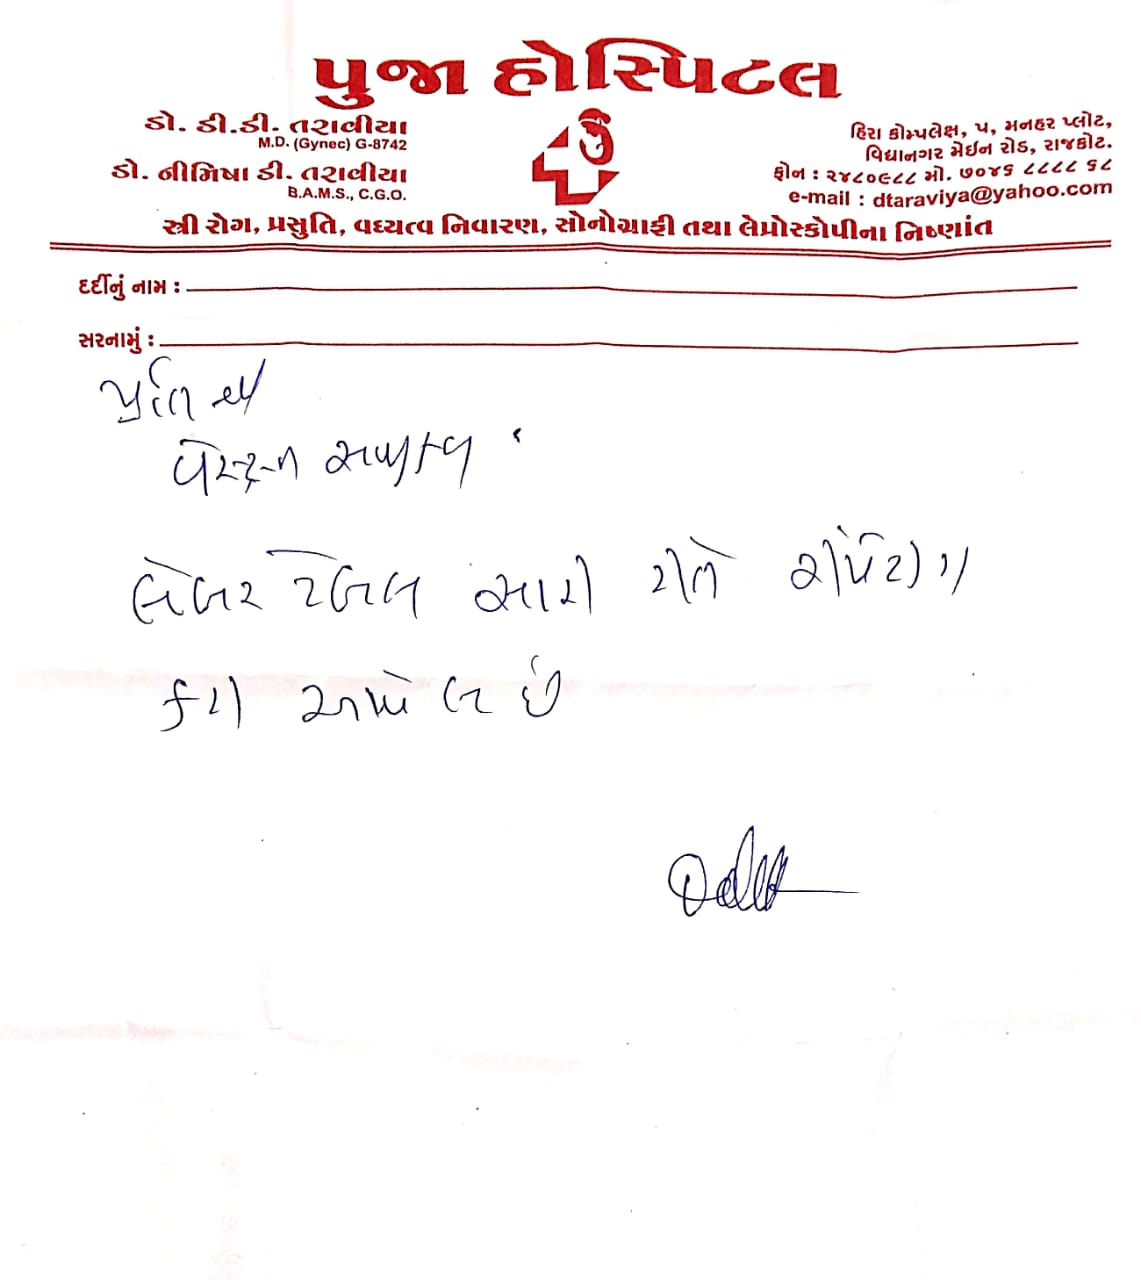 પુજા હોસ્પિટલ
ડો. ડી.ડી. તરાવીયા
M.D. (Gynec) G-8742
ડો. નીમિષા ડી. તરાવીયા
B.A.M.S., C.G.O.
હિરા કોમ્પલેક્ષ, ૫, મનહર પ્લોટ,
વિદ્યાનગર મેઈન રોડ, રાજકોટ.
ફોન : ૨૪૮૦૯૮૮ મો. ૭૦૪૬ ૮૮૮૮ ૬૮
e-mail : dtaraviya@yahoo.com
સ્ત્રી રોગ, પ્રસુતિ, વધ્યત્વ નિવારણ, સોનોગ્રાફી તથા લેપ્રોસ્કોપીના નિષ્ણાંત
દર્દીનું નામ :
સરનામું :
લેબર ટેબલ સારી રીતે
કરી આપેલ છે